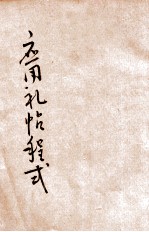 應用礼帖程式